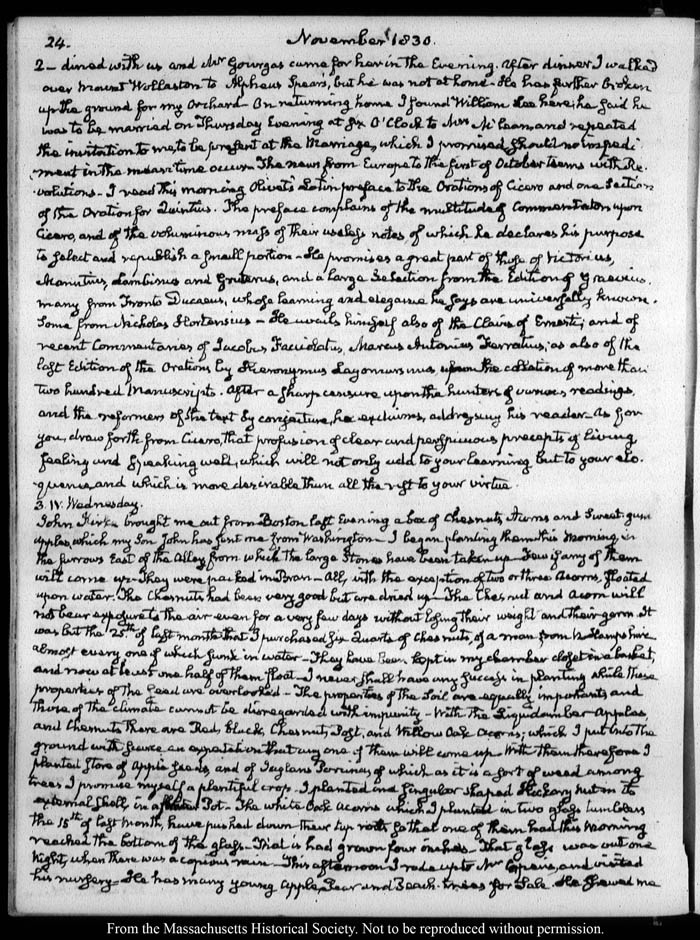 24. November 1830.
2 — dined with us and Mr Gourgas came for her in the Evening. After dinner I walked
over Mount Wollaston to Alpheus Spear's, but he was not at home — He has further broken
up the ground for my Orchard — On returning home I found William Lee here; he said he
was to be married on Thursday Evening at six O'Clock to Mrs McLean and repeated
the invitation to me to be present at the Marriage, which I promised should no impedi-
ment in the mean time occur — The news from Europe to the first of October teems with Re-
volutions. I read this morning Olivet's Latin preface to the Orations of Cicero and one Section
of the Oration for Quintius. The preface complains of the multitude of Commentators upon
Cicero, and of the voluminous mass of their useless notes of which he declares his purpose
to select and republish a small portion — He promises a great part of those of Victorius,
Manutius, Lambinus and Gruterus, and a large selection from the Edition of Graevius.
many from Fronto Ducaeus, whose learning and elegance he says are universally known.
Some from Nicholas Hortensius — He avails himself also of the Clavis of Ernesti; and of
recent Commentaries of Jacobus Facciolatus, Marcus Antonius Ferratius; as also of the
last Edition of the Orations by Hieronymus Lagomarsinus, upon the collation of more than
two hundred Manuscripts. After a sharp censure upon the hunters of various readings,
and the reformers of the text by conjecture, he exclaims, addressing his reader — As for
you, draw forth from Cicero, that profusion of clear and perspicuous precepts of living
feeling and speaking well, which will not only add to your learning but to your elo-
quence, and which is more desirable than all the rest to your virtue.
3. IV. Wednesday.
John Kirke brought me out from Boston last Evening a box of Chesnuts, Acorns and Sweet-gum
apples, which my Son John has sent me from Washington — I began planting them this Morning, in
the furrows East of the Alley from which the large Stones have been taken up — Few if any of them
will come up — They were packed in Bran — All, with the exception of two or three Acorns, floated
upon water. The Chesnuts had been very good but are dried up — The Chesnut and Acorn will
not bear exposure to the air even for a very few days without losing their weight and their germ. It
was but the 25th of last month that I purchased six Quarts of Chesnuts, of a man from N. Hampshire,
almost every one of which sunk in water — They have been kept in my chamber closet in a basket,
and now at least one half of them float — I never shall have any success in planting while these
properties of the seed are overlooked — The properties of the Soil are equally important, and
those of the climate cannot be disregarded with impunity — With the Liquidamber Apples,
and Chesnuts there are Red, black, Chesnut, Post, and Willow Oak Acorns; which I put into the
ground with scarce an expectation that any one of them will come up — With them therefore I
planted store of Apple seeds, and of Juglans Porcinas of which as it is a sort of weed among
trees I promise myself a plentiful crop. I planted one singular shaped Hickory nut in its
external shell, in a Pot — The white Oak Acorns which I planted in two glass tumblers
the 15th of last month, have pushed down their tap roots so that one of them had this Morning
reached the bottom of the glass — That is had grown four inches — That glass was out one
Night, when there was a copious rain — This afternoon I rode up to Mr and visited
his nursery — He has many young Apple, Pear and Peach-trees for Sale. He shewed me
From the Massachusetts Historical Society. Not to be reproduced without permission.